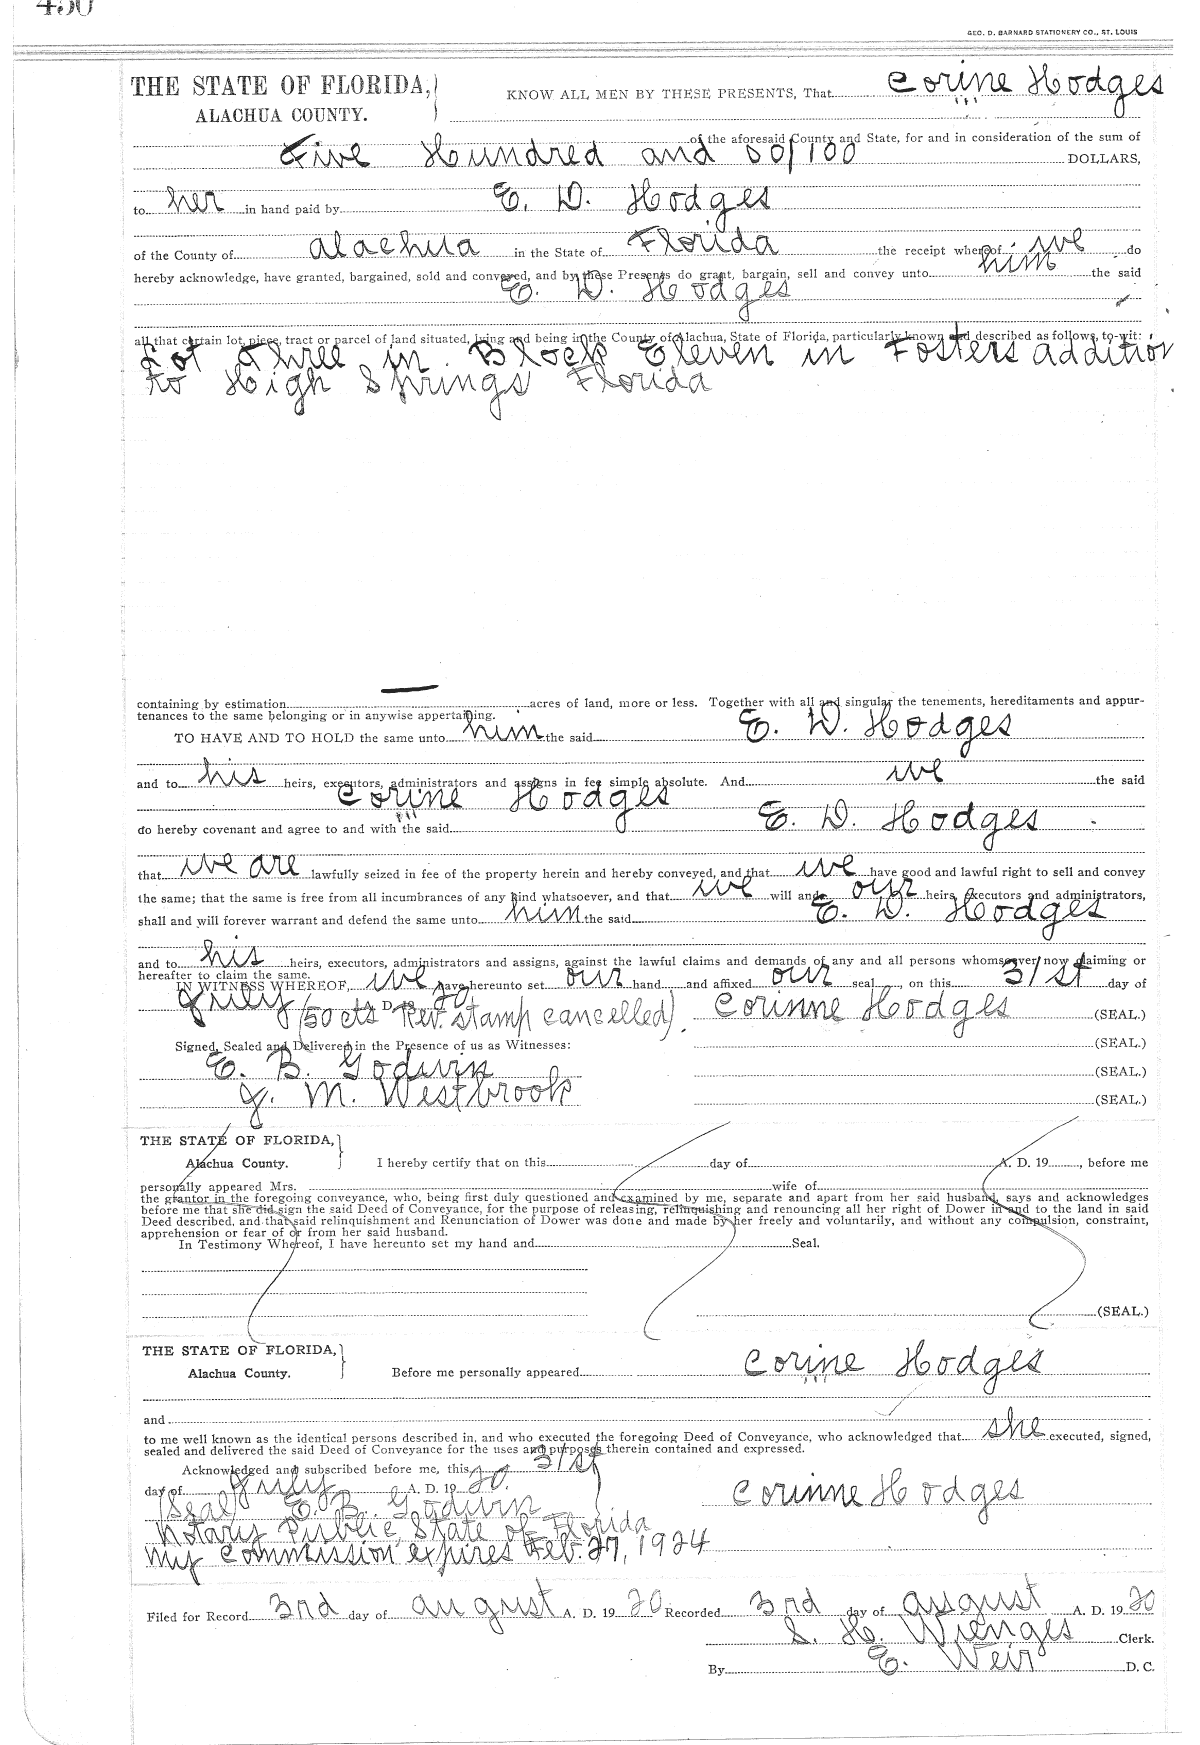 450
GEO. D. BARNARD STATIONERY CO., ST. LOUIS
THE STATE OF FLORIDA,
ALACHUA COUNTY.
KNOW ALL MEN BY THESE PRESENTS, That Corine Hodges
of the aforesaid County and State, for and in consideration of the sum of
Five Hundred and 00/100 DOLLARS,
to her in hand paid by E. D. Hodges
of the County of Alachua in the State of Florida the receipt whereof we do
hereby acknowledge, have granted, bargained, sold and conveyed, and by these Presents do grant, bargain, sell and convey unto him the said
E. D. Hodges
all that certain lot, piece, tract or parcel of land situated, lying and being in the County of Alachua, State of Florida, particularly known and described as follows, to-wit:
Lot Three in Block Eleven in Fosters addition
to High Springs Florida
containing by estimation — acres of land, more or less. Together with all and singular the tenements, hereditaments and appur-
tenances to the same belonging or in anywise appertaining.
TO HAVE AND TO HOLD the same unto him the said E. D. Hodges
and to his heirs, executors, administrators and assigns in fee simple absolute. And we the said
Corine Hodges
do hereby covenant and agree to and with the said E. D. Hodges
that we are lawfully seized in fee of the property herein and hereby conveyed, and that we have good and lawful right to sell and convey
the same; that the same is free from all incumbrances of any kind whatsoever, and that we will and our heirs, executors and administrators,
shall and will forever warrant and defend the same unto him the said E. D. Hodges
and to his heirs, executors, administrators and assigns, against the lawful claims and demands of any and all persons whomsoever now claiming or
hereafter to claim the same.
IN WITNESS WHEREOF, we have hereunto set our hand and affixed our seal, on this 31st day of
July A. D. 19 20
(50 cts Rev. stamp cancelled). Corinne Hodges (SEAL.)
Signed, Sealed and Delivered in the Presence of us as Witnesses: (SEAL.)
E. B. Godwin (SEAL.)
J. M. Westbrook (SEAL.)
THE STATE OF FLORIDA,
Alachua County. I hereby certify that on this day of A. D. 19 , before me
personally appeared Mrs. wife of
the grantor in the foregoing conveyance, who, being first duly questioned and examined by me, separate and apart from her said husband, says and acknowledges
before me that she did sign the said Deed of Conveyance, for the purpose of releasing, relinquishing and renouncing all her right of Dower in and to the land in said
Deed described, and that said relinquishment and Renunciation of Dower was done and made by her freely and voluntarily, and without any compulsion, constraint,
apprehension or fear of or from her said husband.
In Testimony Whereof, I have hereunto set my hand and Seal.
(SEAL.)
THE STATE OF FLORIDA,
Alachua County. Before me personally appeared Corine Hodges
and
to me well known as the identical persons described in, and who executed the foregoing Deed of Conveyance, who acknowledged that she executed, signed,
sealed and delivered the said Deed of Conveyance for the uses and purposes therein contained and expressed.
Acknowledged and subscribed before me, this 31st
day of July A. D. 19 20. Corinne Hodges
(Seal) E. B. Godwin
Notary Public, State of Florida
My Commission expires Feb. 27, 1924
Filed for Record 3rd day of august A. D. 19 20 Recorded 3rd day of august A. D. 19 20
S. H. Wienges Clerk.
By E. Weir D. C.